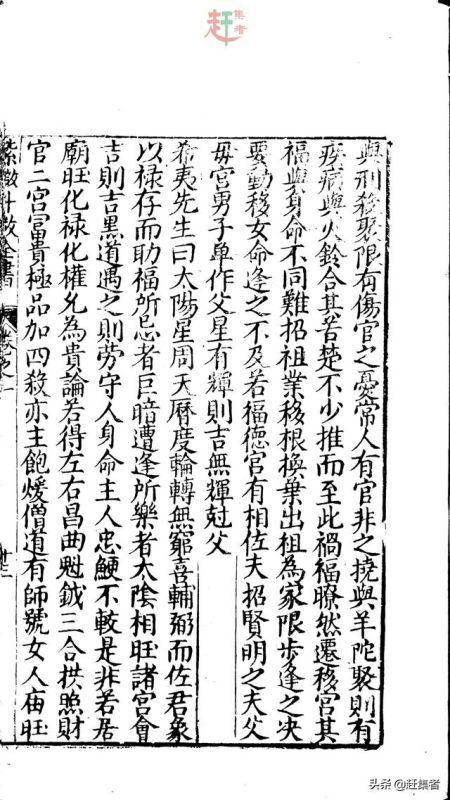 赶集者
與刑殺聚限有傷官之憂常人有官非之撓與羊陀聚則有
疾病與火鈴合其苦楚不少推而至此禍福瞭然遷移宮其
福與身命不同難招祖業移根換葉出祖為家限步逢之决
要動移女命逢之不及若福德宮有相佐夫招賢明之夫父
母宮男子单作父星有輝則吉無輝尅父
希夷先生曰太陽星周天曆度輪轉無窮喜輔弼而佐君象
以禄存而助福所忌者巨暗遭逢所樂者太陰相旺諸宮會
吉則吉黑道遇之則劳守人身命主人忠鯁不較是非若居
廟旺化禄化權允為貴論若得左右昌曲魁鉞三合拱照財
官二宮富貴極品加四殺亦主飽煖僧道有師號女人庙旺
紫微斗数全書 卷之一
廿二
头条 @赶集者